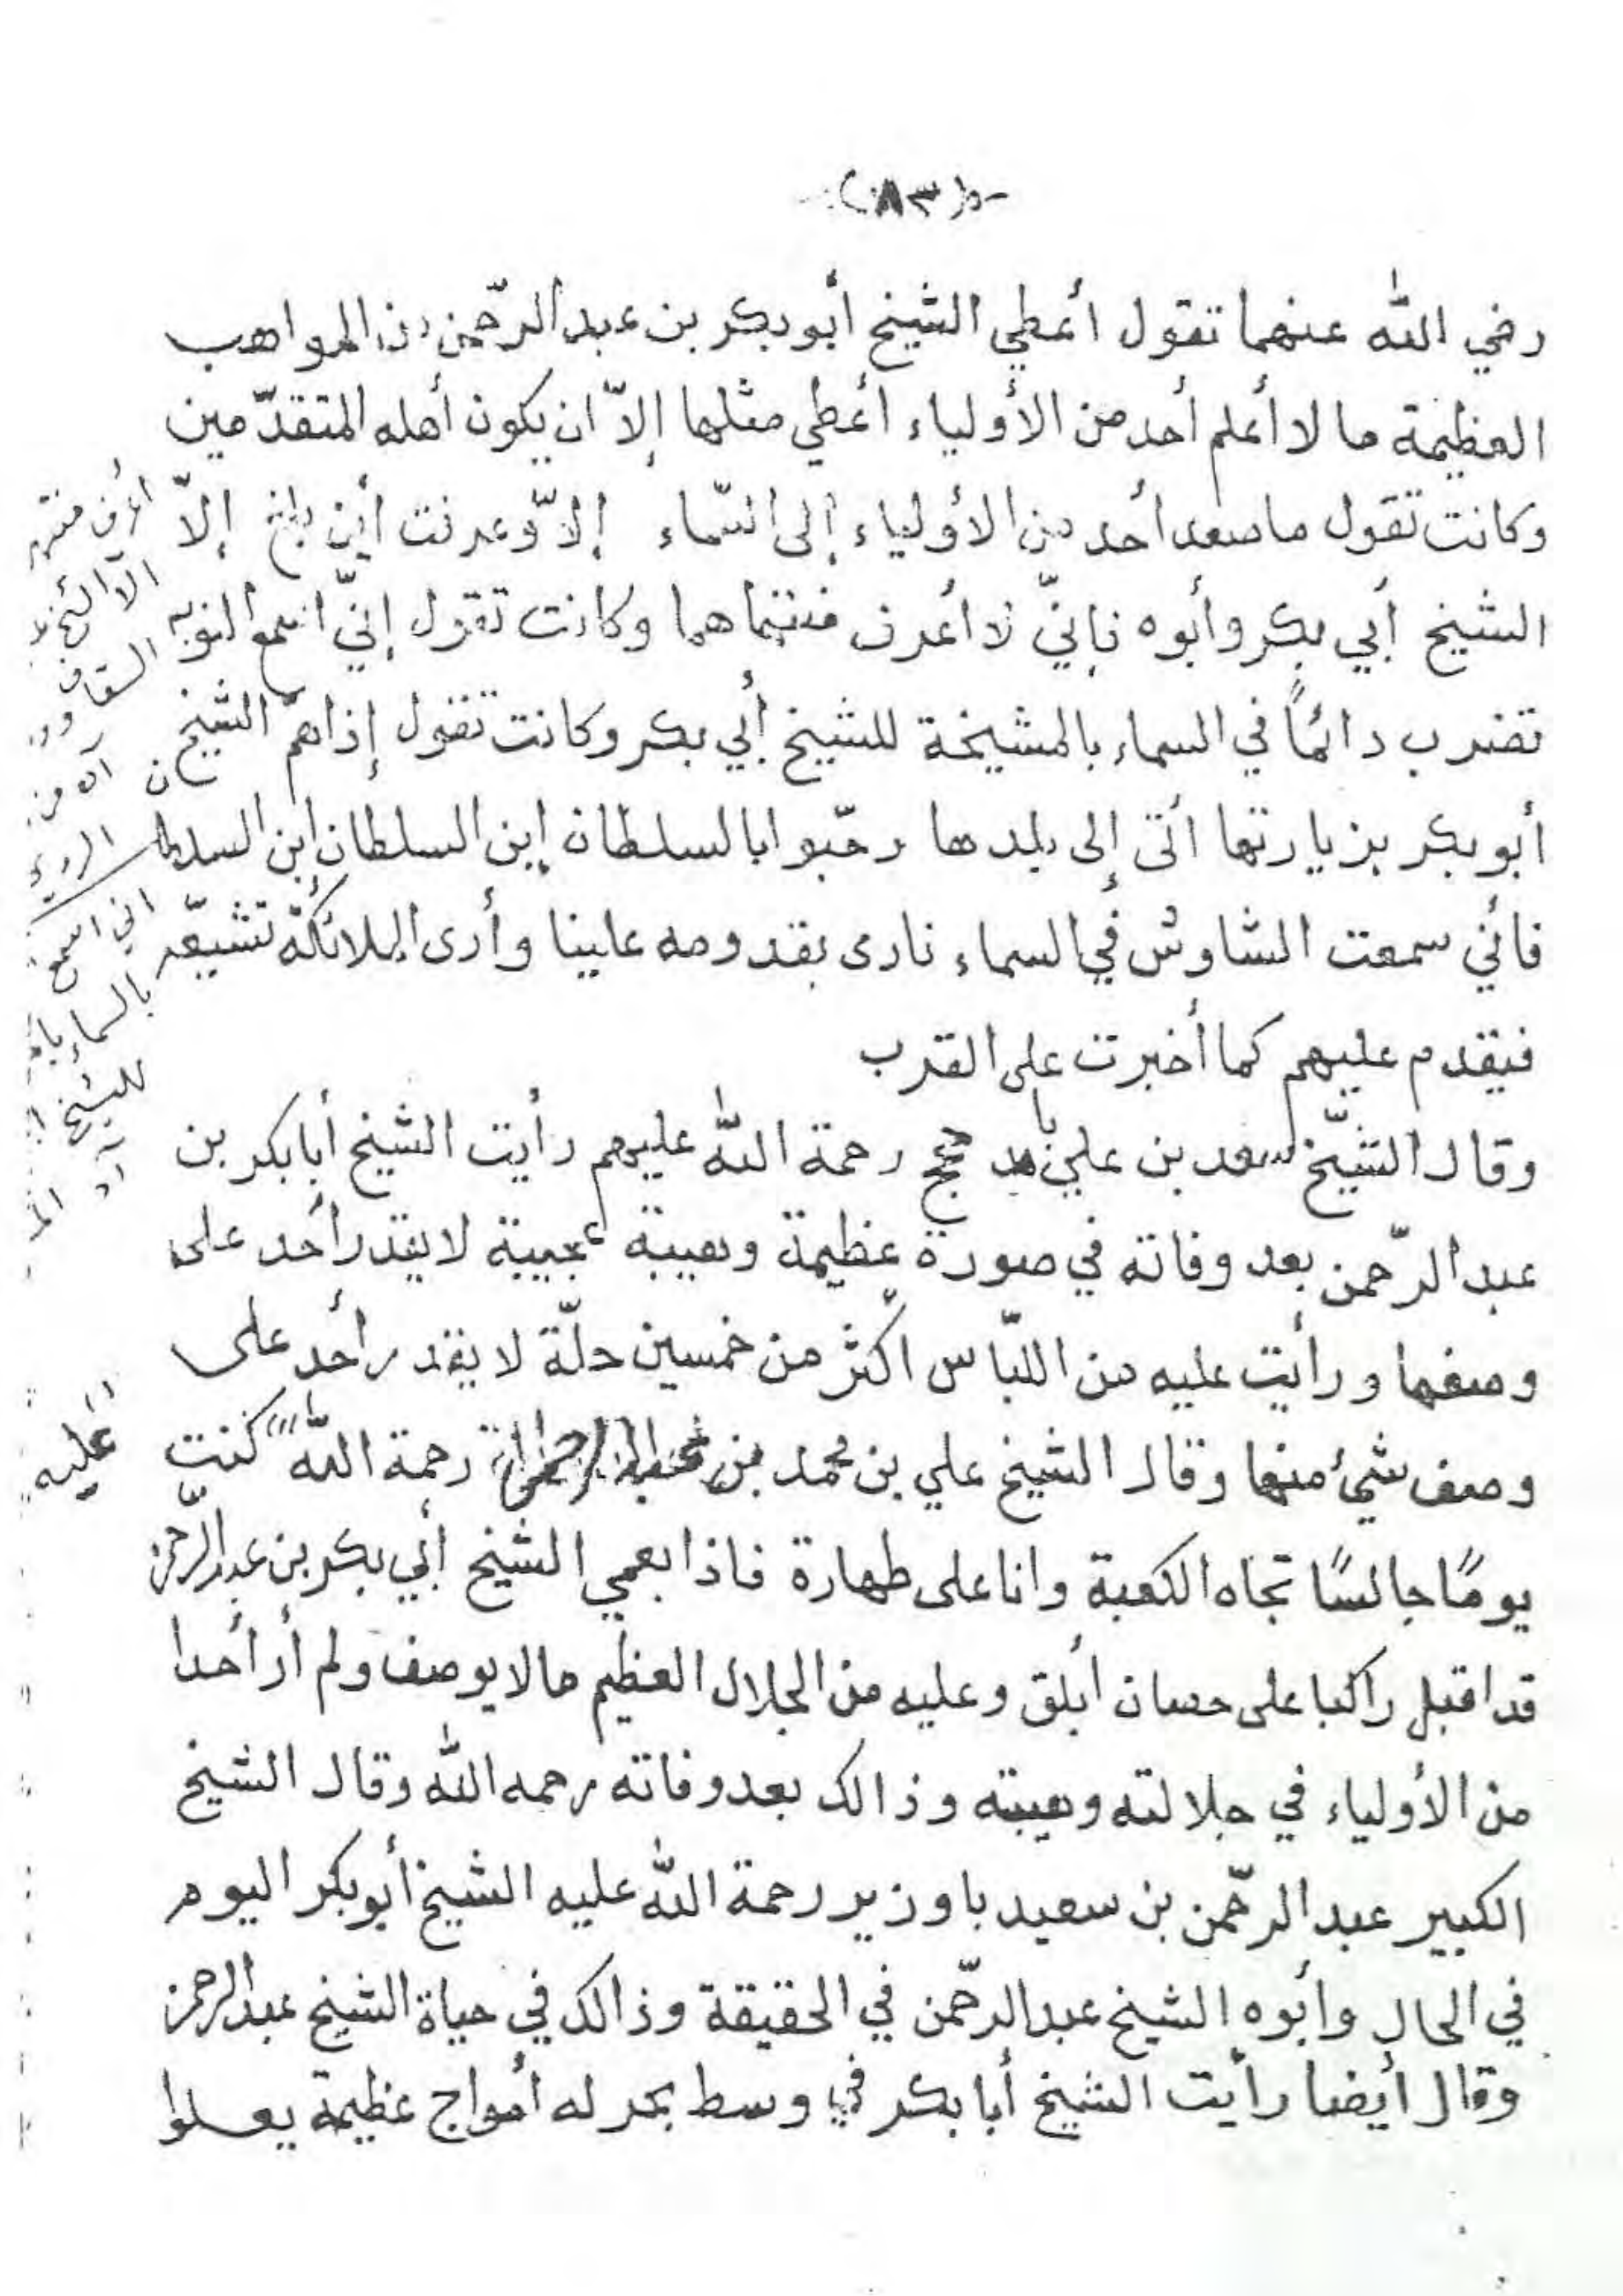 -(٨٣)-
رضي الله عنهما تقول أعطي الشيخ أبو بكر بن عبد الرّحمن من المواهب
العظيمة ما لا أعلم أحد من الأولياء أعطي مثلها إلاّ ان يكون أهله المتقدّمين
وكانت تقول ما صعد أحد من الأولياء إلى السّماء إلاّ وعرفت أين بلغ إلاّ
الشيخ أبي بكر وأبوه فإنّي لا أعرف منتهاهما وكانت تقول إنّي اسمع النوبه
تضرب دائماً في السماء بالمشيخة للشيخ أبي بكر وكانت تقول إذا همّ الشيخ
أبو بكر بزيارتها أتى إلى بلدها رحّبوا بالسلطان إبن السلطان إبن السلطان
فأني سمعت الشاوش في السماء نادى بقدومه علينا وأرى الملائكة تشيّعه
فيقدم عليهم كما أخبرت على القرب
وقال الشيّخ سعد بن علي رحمة الله عليهم رأيت الشيخ أبا بكر بن
عبد الرّحمن بعد وفاته في صورة عظيمة وهيبة عجيبة لا يقدر أحد على
وصفها ورأيت عليه من اللبّاس اكثر من خمسين حلّة لا يقدر أحد على
وصف شئ منها وقال الشيخ علي بن محمد بن رحمة اللّه كنت
عليه
يومًا جالسًا تجاه الكعبة وانا على طهارة فاذا بعمي الشيخ أبي بكر بن عبد الرحمن
قد اقبل راكبا على حصان أبلق وعليه من الجلال العظيم ما لا يوصف ولم أر أحدا
من الأولياء في جلالته وهيبته وذالك بعد وفاته رحمه الله وقال الشيخ
الكبير عبد الرّحمن بن سعيد باوزير رحمة الله عليه الشيخ أبو بكر اليوم
في الحال وأبوه الشيخ عبد الرّحمن في الحقيقة وذالك في حياة الشيخ عبد الرحمن
وقال أيضا رأيت الشيخ أبا بكر في وسط بحر له أمواج عظيمة يعلوا